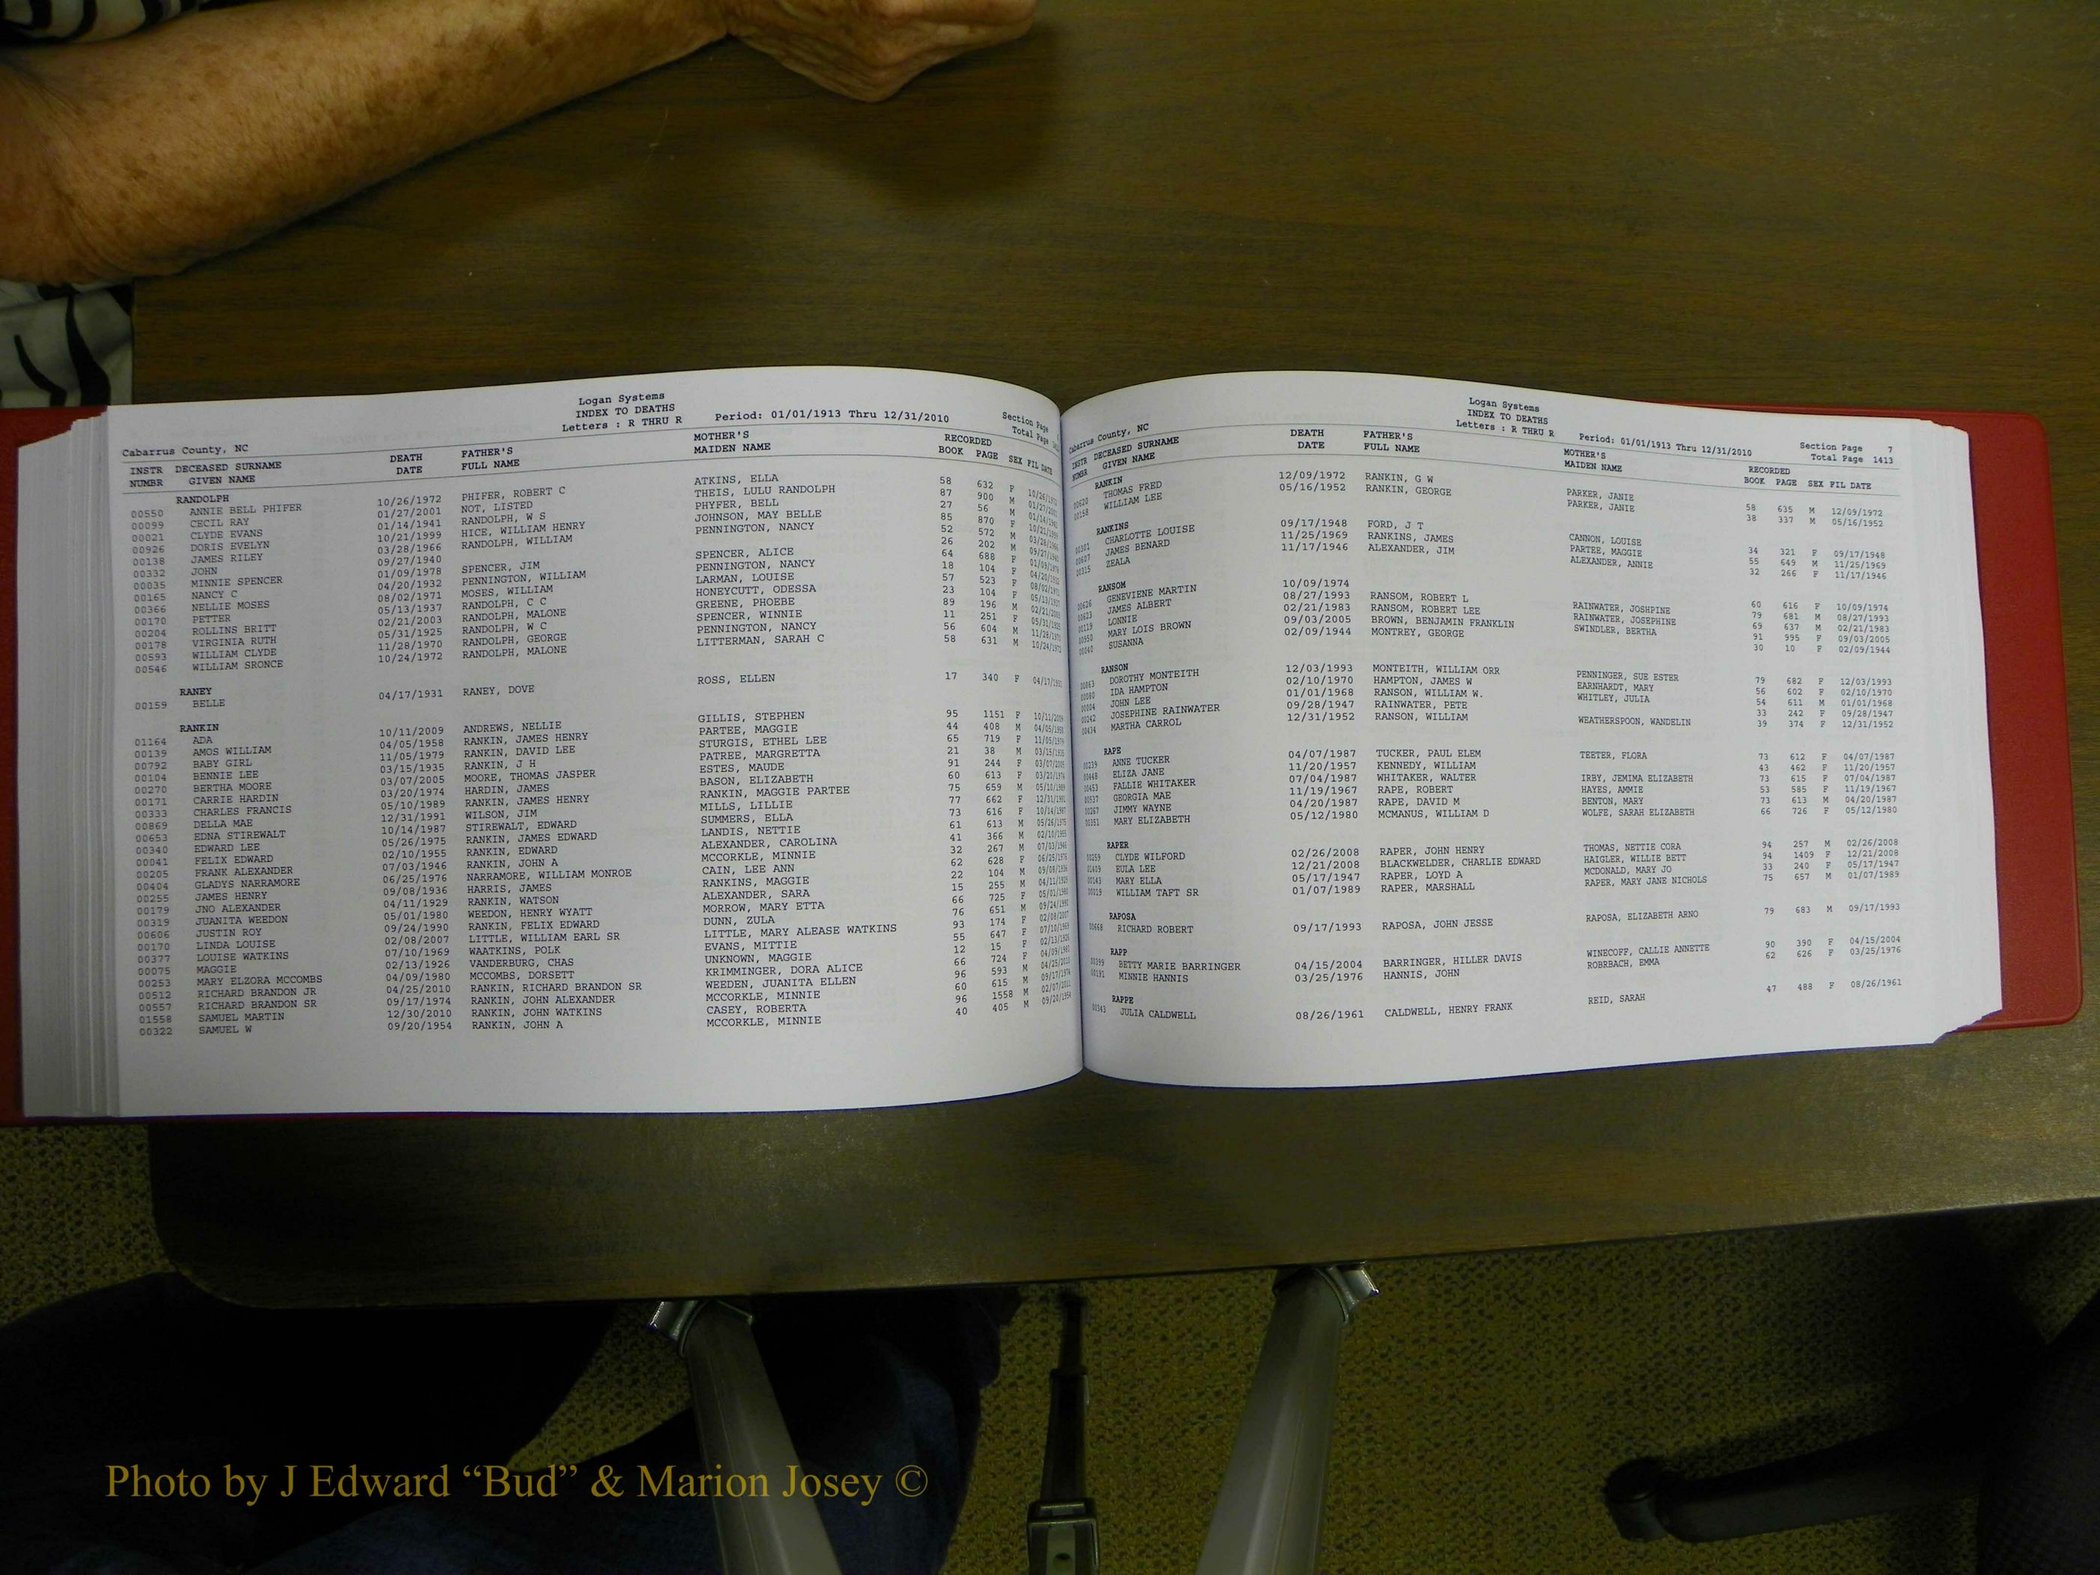 Logan Systems
INDEX TO DEATHS
Letters : R THRU R Period: 01/01/1913 Thru 12/31/2010
Section Page
Total Page
Cabarrus County, NC
INSTR DECEASED SURNAME DEATH FATHER'S MOTHER'S RECORDED
NUMBR GIVEN NAME DATE FULL NAME MAIDEN NAME BOOK PAGE SEX FIL DATE
RANDOLPH
00550 ANNIE BELL PHIFER 10/26/1972 PHIFER, ROBERT C ATKINS, ELLA 58 632 F 10/26/1972
00099 CECIL RAY 01/27/2001 NOT, LISTED THEIS, LULU RANDOLPH 87 900 M 01/27/2001
00021 CLYDE EVANS 01/14/1941 RANDOLPH, W S PHYFER, BELL 27 56 M 01/14/1941
00926 DORIS EVELYN 10/21/1999 HICE, WILLIAM HENRY JOHNSON, MAY BELLE 85 870 F 10/21/1999
00138 JAMES RILEY 03/28/1966 RANDOLPH, WILLIAM PENNINGTON, NANCY 52 572 M 03/28/1966
00332 JOHN 09/27/1940 26 202 M 09/27/1940
00035 MINNIE SPENCER 01/09/1978 SPENCER, JIM SPENCER, ALICE 64 688 F 01/09/1978
00165 NANCY C 04/20/1932 PENNINGTON, WILLIAM PENNINGTON, NANCY 18 104 F 04/20/1932
00366 NELLIE MOSES 08/02/1971 MOSES, WILLIAM LARMAN, LOUISE 57 523 F 08/02/1971
00170 PETTER 05/13/1937 RANDOLPH, C C HONEYCUTT, ODESSA 23 104 F 05/13/1937
00204 ROLLINS BRITT 02/21/2003 RANDOLPH, MALONE GREENE, PHOEBE 89 196 M 02/21/2003
00178 VIRGINIA RUTH 05/31/1925 RANDOLPH, W C SPENCER, WINNIE 11 251 F 05/31/1925
00593 WILLIAM CLYDE 11/28/1970 RANDOLPH, GEORGE PENNINGTON, NANCY 56 604 M 11/28/1970
00546 WILLIAM SRONCE 10/24/1972 RANDOLPH, MALONE LITTERMAN, SARAH C 58 631 M 10/24/1972
RANEY
00159 BELLE 04/17/1931 RANEY, DOVE ROSS, ELLEN 17 340 F 04/17/1931
RANKIN
01164 ADA 10/11/2009 ANDREWS, NELLIE GILLIS, STEPHEN 95 1151 F 10/11/2009
00139 AMOS WILLIAM 04/05/1958 RANKIN, JAMES HENRY PARTEE, MAGGIE 44 408 M 04/05/1958
00792 BABY GIRL 11/05/1979 RANKIN, DAVID LEE STURGIS, ETHEL LEE 65 719 F 11/05/1979
00104 BENNIE LEE 03/15/1935 RANKIN, J H PATREE, MARGRETTA 21 38 M 03/15/1935
00270 BERTHA MOORE 03/07/2005 MOORE, THOMAS JASPER ESTES, MAUDE 91 244 F 03/07/2005
00171 CARRIE HARDIN 03/20/1974 HARDIN, JAMES BASON, ELIZABETH 60 613 F 03/20/1974
00333 CHARLES FRANCIS 05/10/1989 RANKIN, JAMES HENRY RANKIN, MAGGIE PARTEE 75 659 M 05/10/1989
00869 DELLA MAE 12/31/1991 WILSON, JIM MILLS, LILLIE 77 662 F 12/31/1991
00653 EDNA STIREWALT 10/14/1987 STIREWALT, EDWARD SUMMERS, ELLA 73 616 F 10/14/1987
00340 EDWARD LEE 05/26/1975 RANKIN, JAMES EDWARD LANDIS, NETTIE 61 613 M 05/26/1975
00041 FELIX EDWARD 02/10/1955 RANKIN, EDWARD ALEXANDER, CAROLINA 41 366 M 02/10/1955
00205 FRANK ALEXANDER 07/03/1946 RANKIN, JOHN A MCCORKLE, MINNIE 32 267 M 07/03/1946
00404 GLADYS NARRAMORE 06/25/1976 NARRAMORE, WILLIAM MONROE CAIN, LEE ANN 62 628 F 06/25/1976
00255 JAMES HENRY 09/08/1936 HARRIS, JAMES RANKINS, MAGGIE 22 104 M 09/08/1936
00179 JNO ALEXANDER 04/11/1929 RANKIN, WATSON ALEXANDER, SARA 15 255 M 04/11/1929
00319 JUANITA WEEDON 05/01/1980 WEEDON, HENRY WYATT MORROW, MARY ETTA 66 725 F 05/01/1980
00606 JUSTIN ROY 09/24/1990 RANKIN, FELIX EDWARD DUNN, ZULA 76 651 M 09/24/1990
00170 LINDA LOUISE 02/08/2007 LITTLE, WILLIAM EARL SR LITTLE, MARY ALEASE WATKINS 93 174 F 02/08/2007
00377 LOUISE WATKINS 07/10/1969 WAATKINS, POLK EVANS, MITTIE 55 647 F 07/10/1969
00075 MAGGIE 02/13/1926 VANDERBURG, CHAS UNKNOWN, MAGGIE 12 15 F 02/13/1926
00253 MARY ELZORA MCCOMBS 04/09/1980 MCCOMBS, DORSETT KRIMMINGER, DORA ALICE 66 724 F 04/09/1980
00512 RICHARD BRANDON JR 04/25/2010 RANKIN, RICHARD BRANDON SR WEEDEN, JUANITA ELLEN 96 593 M 04/25/2010
00557 RICHARD BRANDON SR 09/17/1974 RANKIN, JOHN ALEXANDER MCCORKLE, MINNIE 60 615 M 09/17/1974
01558 SAMUEL MARTIN 12/30/2010 RANKIN, JOHN WATKINS CASEY, ROBERTA 96 1558 M 02/07/2011
00322 SAMUEL W 09/20/1954 RANKIN, JOHN A MCCORKLE, MINNIE 40 405 M 09/20/1954
Logan Systems
INDEX TO DEATHS
Letters : R THRU R Period: 01/01/1913 Thru 12/31/2010
Section Page 7
Total Page 1413
Cabarrus County, NC
INSTR DECEASED SURNAME DEATH FATHER'S MOTHER'S RECORDED
NUMBR GIVEN NAME DATE FULL NAME MAIDEN NAME BOOK PAGE SEX FIL DATE
RANKIN
00620 THOMAS FRED 12/09/1972 RANKIN, G W PARKER, JANIE 58 635 M 12/09/1972
00158 WILLIAM LEE 05/16/1952 RANKIN, GEORGE PARKER, JANIE 38 337 M 05/16/1952
RANKINS
00301 CHARLOTTE LOUISE 09/17/1948 FORD, J T CANNON, LOUISE 34 321 F 09/17/1948
00607 JAMES BENARD 11/25/1969 RANKINS, JAMES PARTEE, MAGGIE 55 649 M 11/25/1969
00315 ZEALA 11/17/1946 ALEXANDER, JIM ALEXANDER, ANNIE 32 266 F 11/17/1946
RANSOM
00626 GENEVIENE MARTIN 10/09/1974 60 616 F 10/09/1974
00623 JAMES ALBERT 08/27/1993 RANSOM, ROBERT L RAINWATER, JOSHPINE 79 681 M 08/27/1993
00119 LONNIE 02/21/1983 RANSOM, ROBERT LEE RAINWATER, JOSEPHINE 69 637 M 02/21/1983
00950 MARY LOIS BROWN 09/03/2005 BROWN, BENJAMIN FRANKLIN SWINDLER, BERTHA 91 995 F 09/03/2005
00040 SUSANNA 02/09/1944 MONTREY, GEORGE 30 10 F 02/09/1944
RANSON
00863 DOROTHY MONTEITH 12/03/1993 MONTEITH, WILLIAM ORR PENNINGER, SUE ESTER 79 682 F 12/03/1993
00080 IDA HAMPTON 02/10/1970 HAMPTON, JAMES W EARNHARDT, MARY 56 602 F 02/10/1970
00004 JOHN LEE 01/01/1968 RANSON, WILLIAM W. WHITLEY, JULIA 54 611 M 01/01/1968
00242 JOSEPHINE RAINWATER 09/28/1947 RAINWATER, PETE 33 242 F 09/28/1947
00434 MARTHA CARROL 12/31/1952 RANSON, WILLIAM WEATHERSPOON, WANDELIN 39 374 F 12/31/1952
RAPE
00239 ANNE TUCKER 04/07/1987 TUCKER, PAUL ELEM TEETER, FLORA 73 612 F 04/07/1987
00448 ELIZA JANE 11/20/1957 KENNEDY, WILLIAM 43 462 F 11/20/1957
00453 FALLIE WHITAKER 07/04/1987 WHITAKER, WALTER IRBY, JEMIMA ELIZABETH 73 615 F 07/04/1987
00537 GEORGIA MAE 11/19/1967 RAPE, ROBERT HAYES, AMMIE 53 585 F 11/19/1967
00267 JIMMY WAYNE 04/20/1987 RAPE, DAVID M BENTON, MARY 73 613 M 04/20/1987
00351 MARY ELIZABETH 05/12/1980 MCMANUS, WILLIAM D WOLFE, SARAH ELIZABETH 66 726 F 05/12/1980
RAPER
00259 CLYDE WILFORD 02/26/2008 RAPER, JOHN HENRY THOMAS, NETTIE CORA 94 257 M 02/26/2008
01409 EULA LEE 12/21/2008 BLACKWELDER, CHARLIE EDWARD HAIGLER, WILLIE BETT 94 1409 F 12/21/2008
00143 MARY ELLA 05/17/1947 RAPER, LOYD A MCDONALD, MARY JO 33 240 F 05/17/1947
00019 WILLIAM TAFT SR 01/07/1989 RAPER, MARSHALL RAPER, MARY JANE NICHOLS 75 657 M 01/07/1989
RAPOSA
00668 RICHARD ROBERT 09/17/1993 RAPOSA, JOHN JESSE RAPOSA, ELIZABETH ARNO 79 683 M 09/17/1993
RAPP
00399 BETTY MARIE BARRINGER 04/15/2004 BARRINGER, HILLER DAVIS WINECOFF, CALLIE ANNETTE 90 390 F 04/15/2004
00191 MINNIE HANNIS 03/25/1976 HANNIS, JOHN ROBRBACH, EMMA 62 626 F 03/25/1976
RAPPE
00343 JULIA CALDWELL 08/26/1961 CALDWELL, HENRY FRANK REID, SARAH 47 488 F 08/26/1961
Photo by J Edward “Bud” & Marion Josey ©